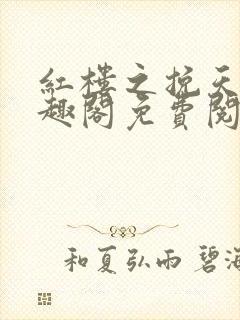 红樓之挽天
趣閣免費閱
和夏弘雨 碧海